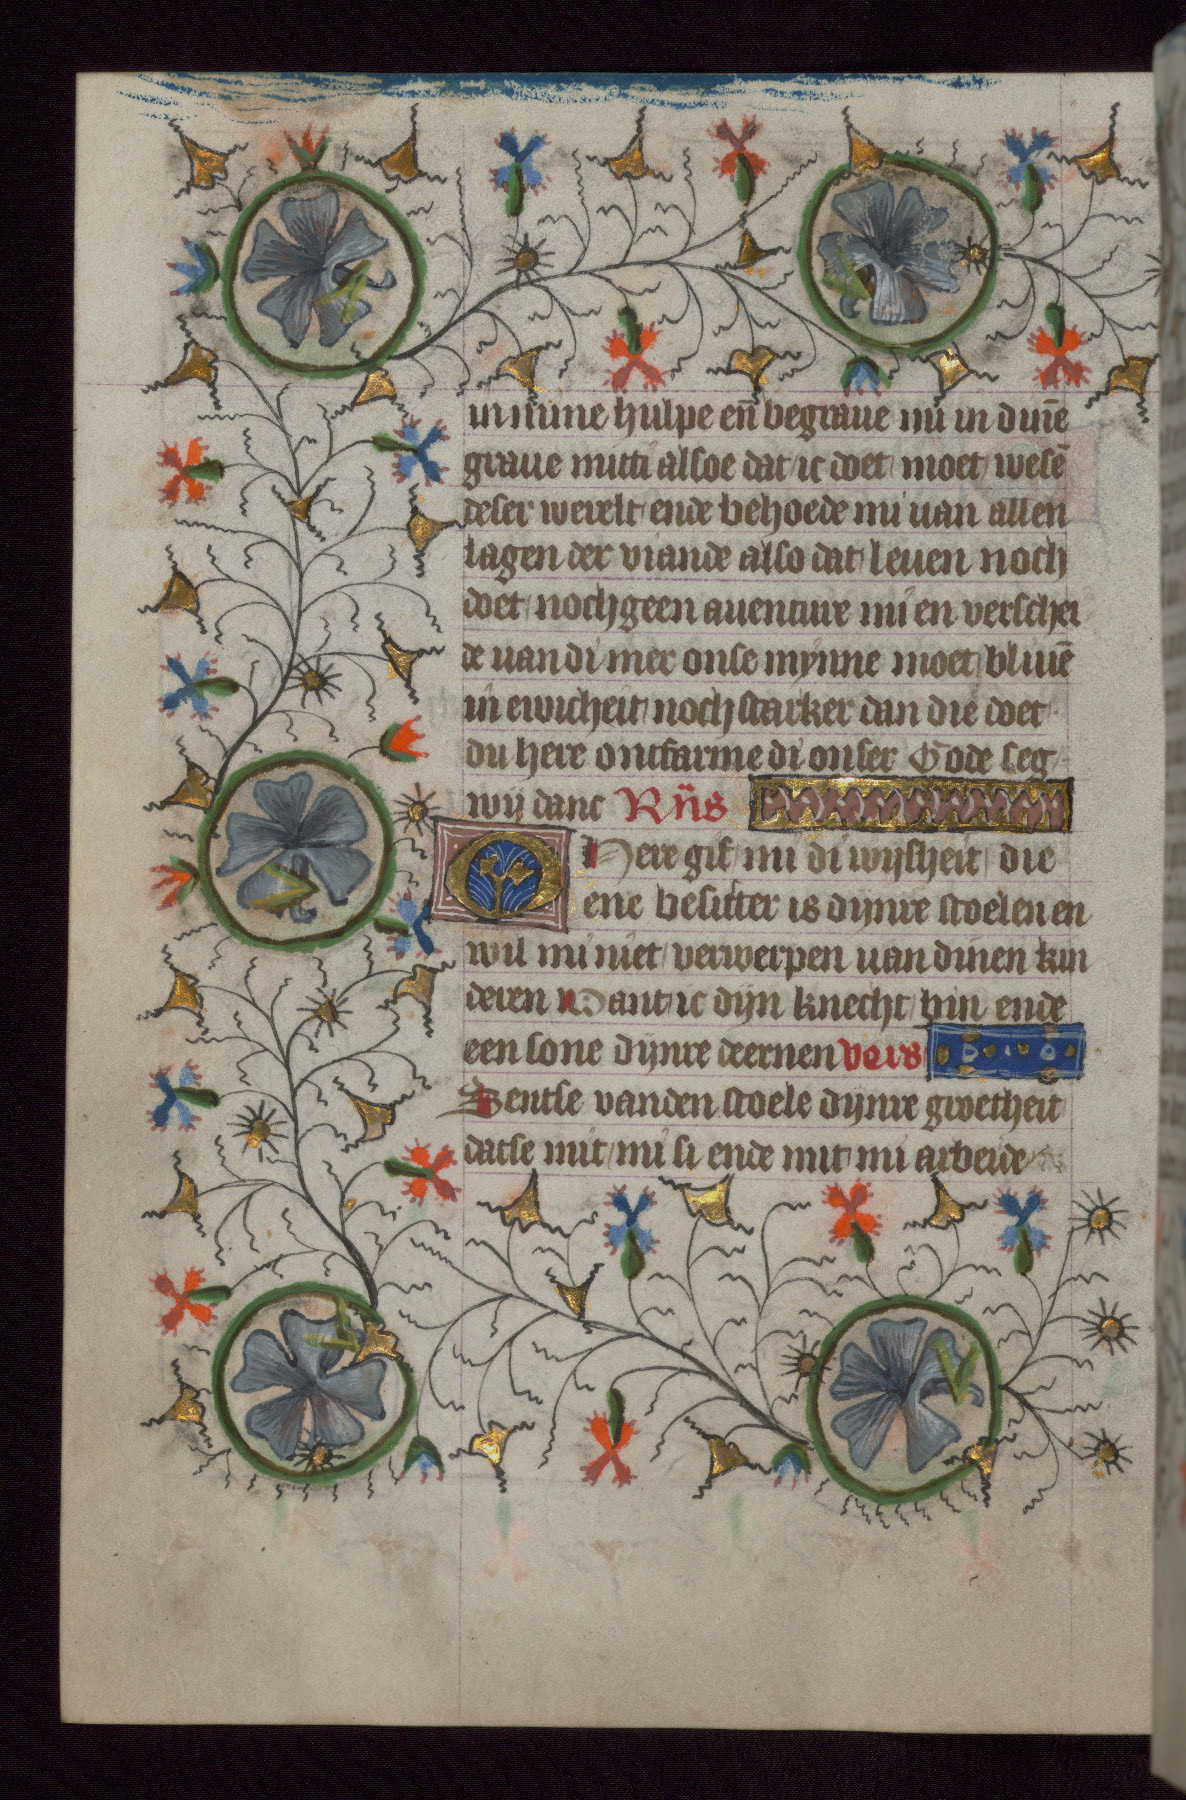 in mine hulpe en̄ begraue mi in dinē
graue mitti alsoe dat ic doet moet wesē
deser werelt ende behoede mi uan allen
lagen der viande also dat leuen noch
doet noch geen auenture mi en verschei
de uan di mer onse mynne moet bliuē
in ewicheit noch starker dan die doet
du here ontfarme di onser Gode seg
wy danc R̄ns
O Here gif mi di wijsheit die
ene besitter is dijnre stoelen en
wil mi niet verwerpen uan dinen kin
deren Want ic dijn knecht bin ende
een sone dijnre deernen vers
Sentse vanden stoele dijnre groetheit
datse mit mi si ende mit mi arbeide